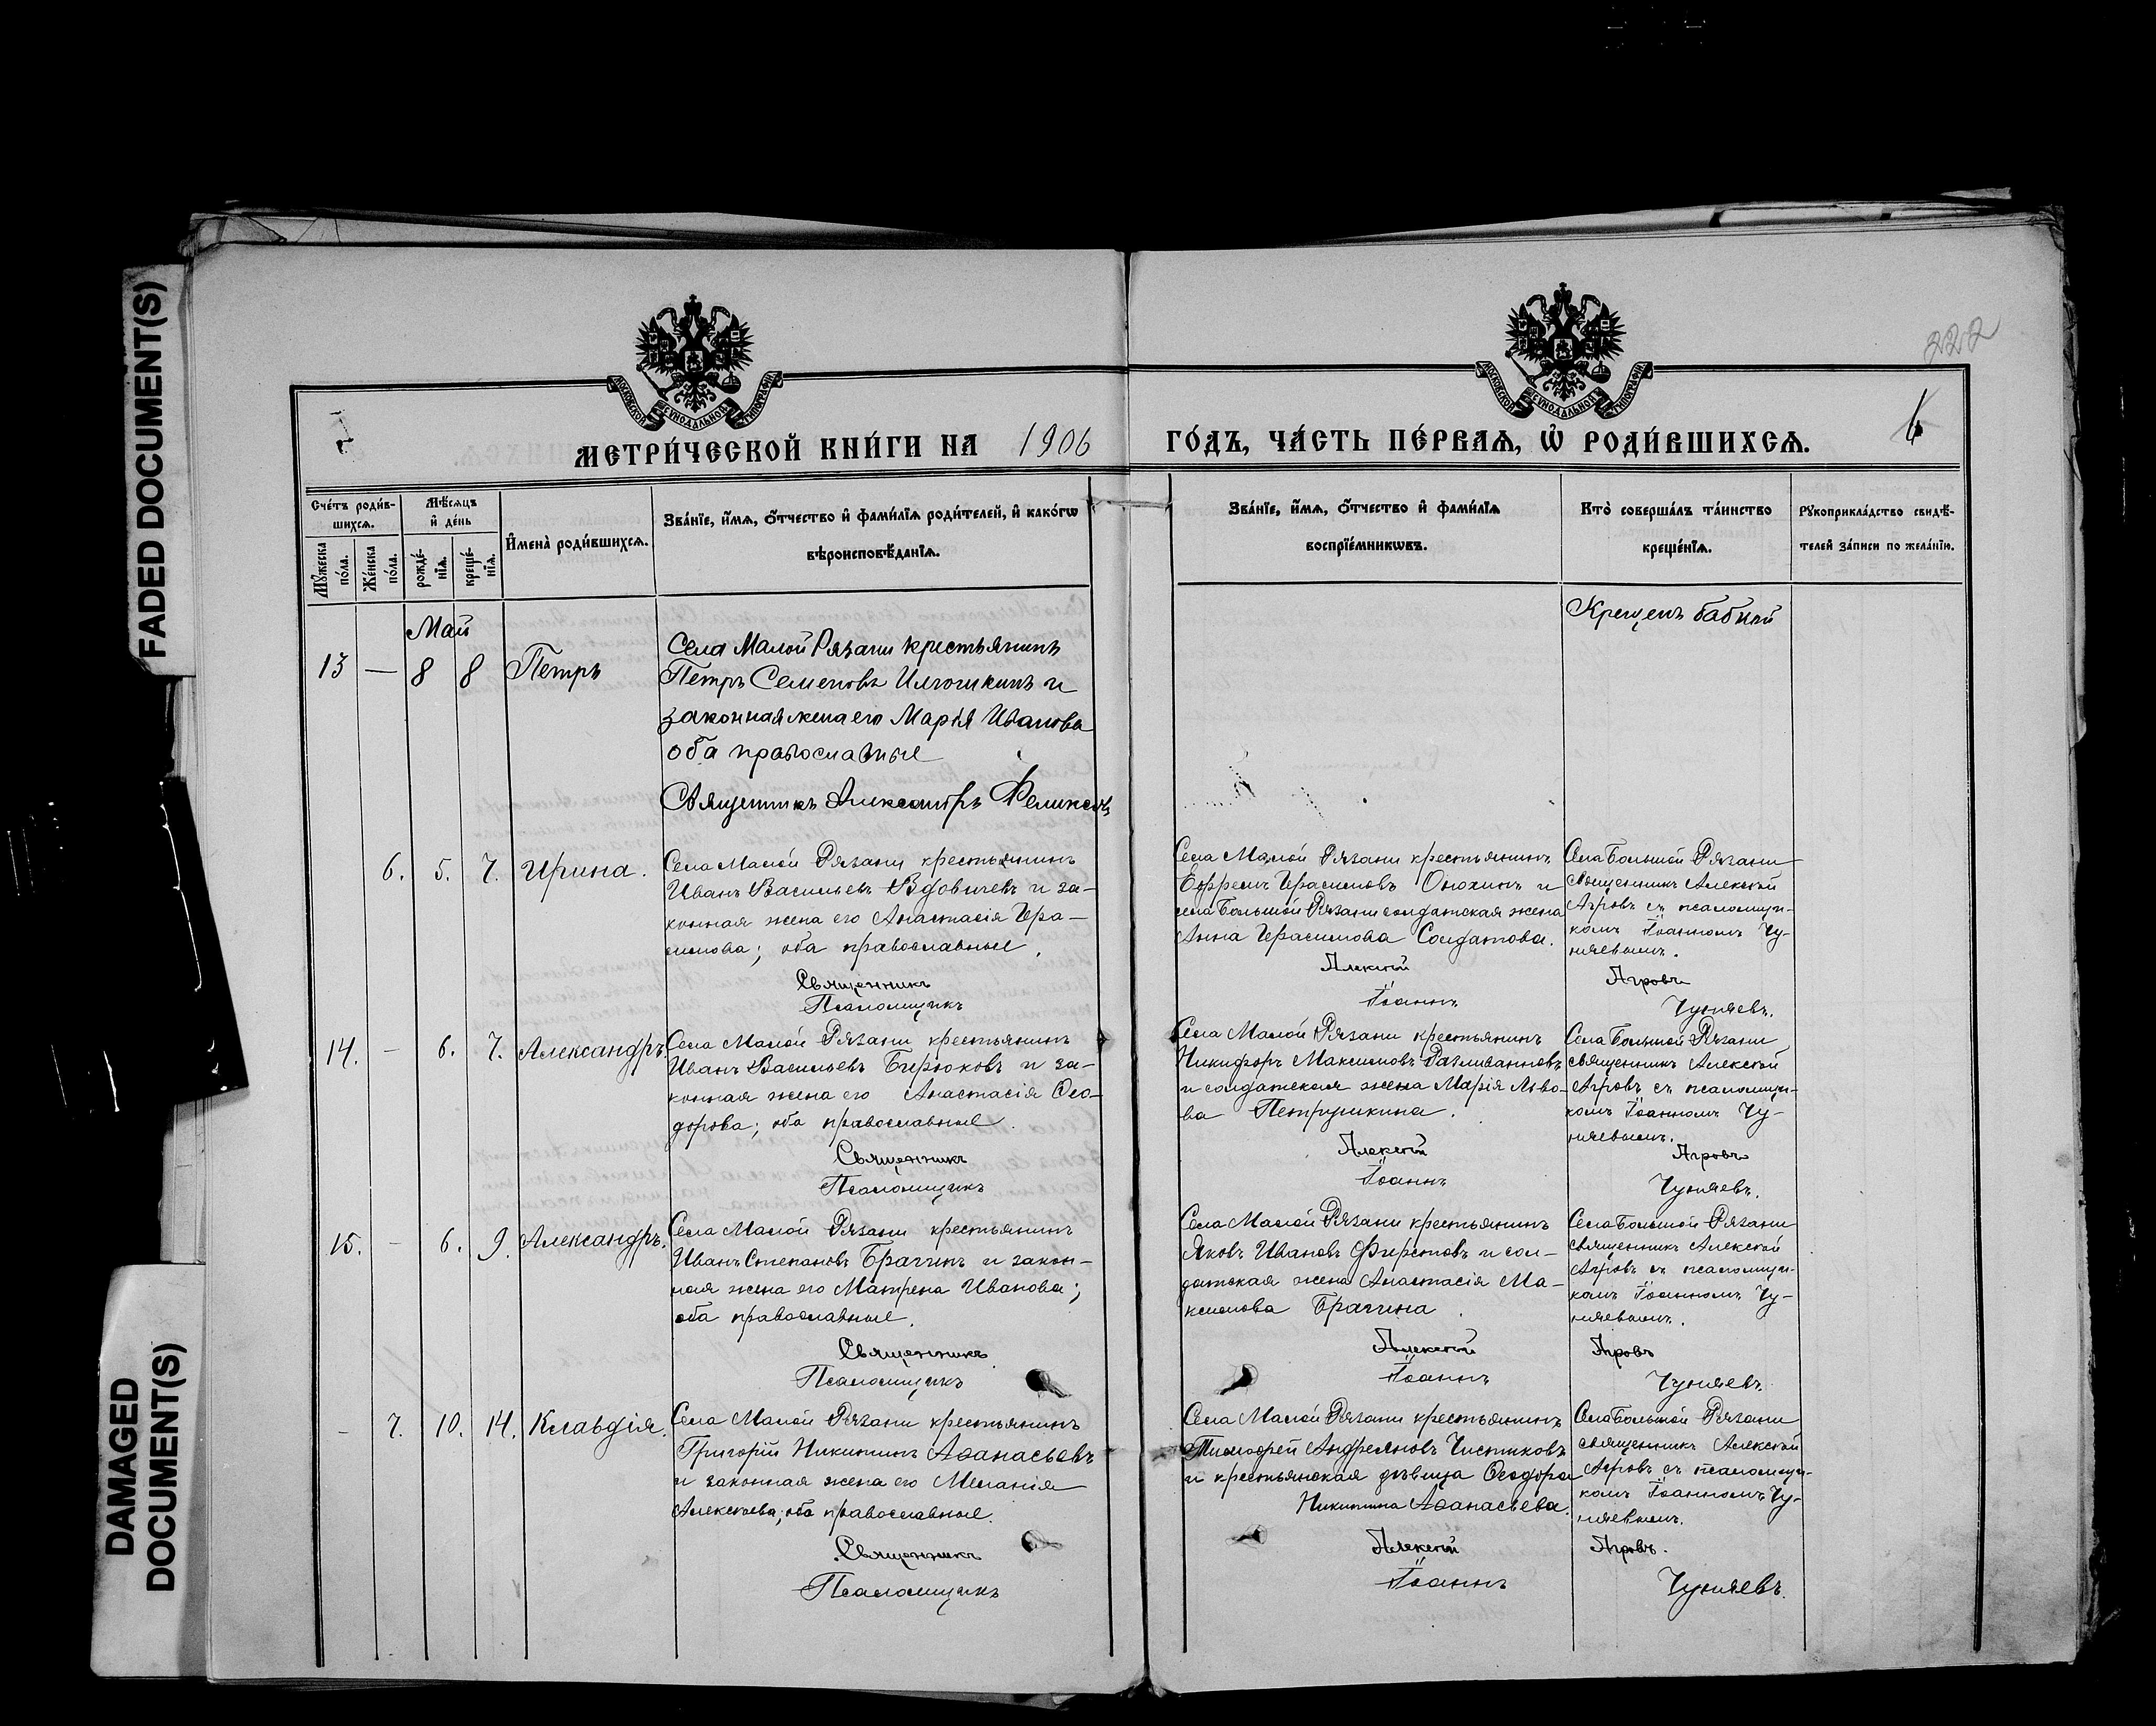 FADED DOCUMENT(S)
DAMAGED
DOCUMENT(S)
222
МОСКОВСКОЙ СѴНОДАЛЬНОЙ ТИПОГРАФІИ
МОСКОВСКОЙ СѴНОДАЛЬНОЙ ТИПОГРАФІИ
МЕТРИ́ЧЕСКОЙ КНИ́ГИ НА 1906 ГО́ДЪ, ЧА́СТЬ ПЕ́РВАѦ, Ѡ҆ РОДИ́ВШИХСѦ. 6
Сче́тъ роди́в-
шихсѧ.
Мꙋ́жеска
по́ла.
Же́нска
по́ла.
Мѣ́сѧцъ
и҆ де́нь
рожде́-
нїѧ.
креще́-
нїѧ.
И҆мена̀ роди́вшихсѧ.
Зва́нїе, и҆́мѧ, ѻ҆́тчество и҆ фами́лїѧ роди́телей, и҆ како́гѡ
вѣроисповѣ́данїѧ.
Зва́нїе, и҆́мѧ, ѻ҆́тчество и҆ фами́лїѧ
воспрїе́мникѡвъ.
Кто̀ соверша́лъ та́инство
креще́нїѧ.
Рꙋкоприкла́дство свидѣ́-
телей за́писи по жела́нїю.
Май
13 — 8 8 Петръ
Села Малой Рязани крестьянинъ
Петръ Семеновъ и
законная жена его Марія Иванова
оба православные
Священникъ Александръ Феликсовъ
Крещенъ бабкой
6. 5. 7. Ирина.
Села Малой Рязани крестьянинъ
Иванъ Васильевъ Вдовичевъ и за-
конная жена его Анастасія Гера-
симова; оба православные.
Священникъ
Псаломщикъ
Села Малой Рязани крестьянинъ
Ефремъ Герасимовъ Онохинъ и
села Большой Рязани солдатская жена
Анна Герасимова Солдатова.
Алексій
Іоаннъ
Села Большой Рязани
священникъ Алексій
Агровъ съ псаломщи-
комъ Іоанномъ Чу-
няевымъ.
Агровъ
Чуняевъ.
14. - 6. 7. Александръ.
Села Малой Рязани крестьянинъ
Иванъ Васильевъ Бирюковъ и за-
конная жена его Анастасія Ѳео-
дорова; оба православные.
Священникъ
Псаломщикъ
Села Малой Рязани крестьянинъ
Никифоръ Максимовъ Разливановъ
и солдатская жена Марія Льво-
ва Петрушкина.
Алексій
Іоаннъ
Села Большой Рязани
священникъ Алексій
Агровъ съ псаломщи-
комъ Іоанномъ Чу-
няевымъ.
Агровъ
Чуняевъ.
15. - 6. 9. Александръ.
Села Малой Рязани крестьянинъ
Иванъ Степановъ Брагинъ и закон-
ная жена его Матрена Иванова;
оба православные.
Священникъ
Псаломщикъ
Села Малой Рязани крестьянинъ
Яковъ Ивановъ Фирстовъ и сол-
датская жена Анастасія Ма-
ксимова Брагина.
Алексій
Іоаннъ
Села Большой Рязани
священникъ Алексій
Агровъ съ псаломщи-
комъ Іоанномъ Чу-
няевымъ.
Агровъ
Чуняевъ.
- 7. 10. 14. Клавдія.
Села Малой Рязани крестьянинъ
Григорій Никитинъ Аѳанасьевъ
и законная жена его Меланія
Алексѣева; оба православные.
Священникъ
Псаломщикъ
Села Малой Рязани крестьянинъ
Тимофей Андреяновъ Чистиковъ
и крестьянская дѣвица Ѳеодора
Никитина Аѳанасьева.
Алексій
Іоаннъ
Села Большой Рязани
священникъ Алексій
Агровъ съ псаломщи-
комъ Іоанномъ Чу-
няевымъ.
Агровъ.
Чуняевъ.